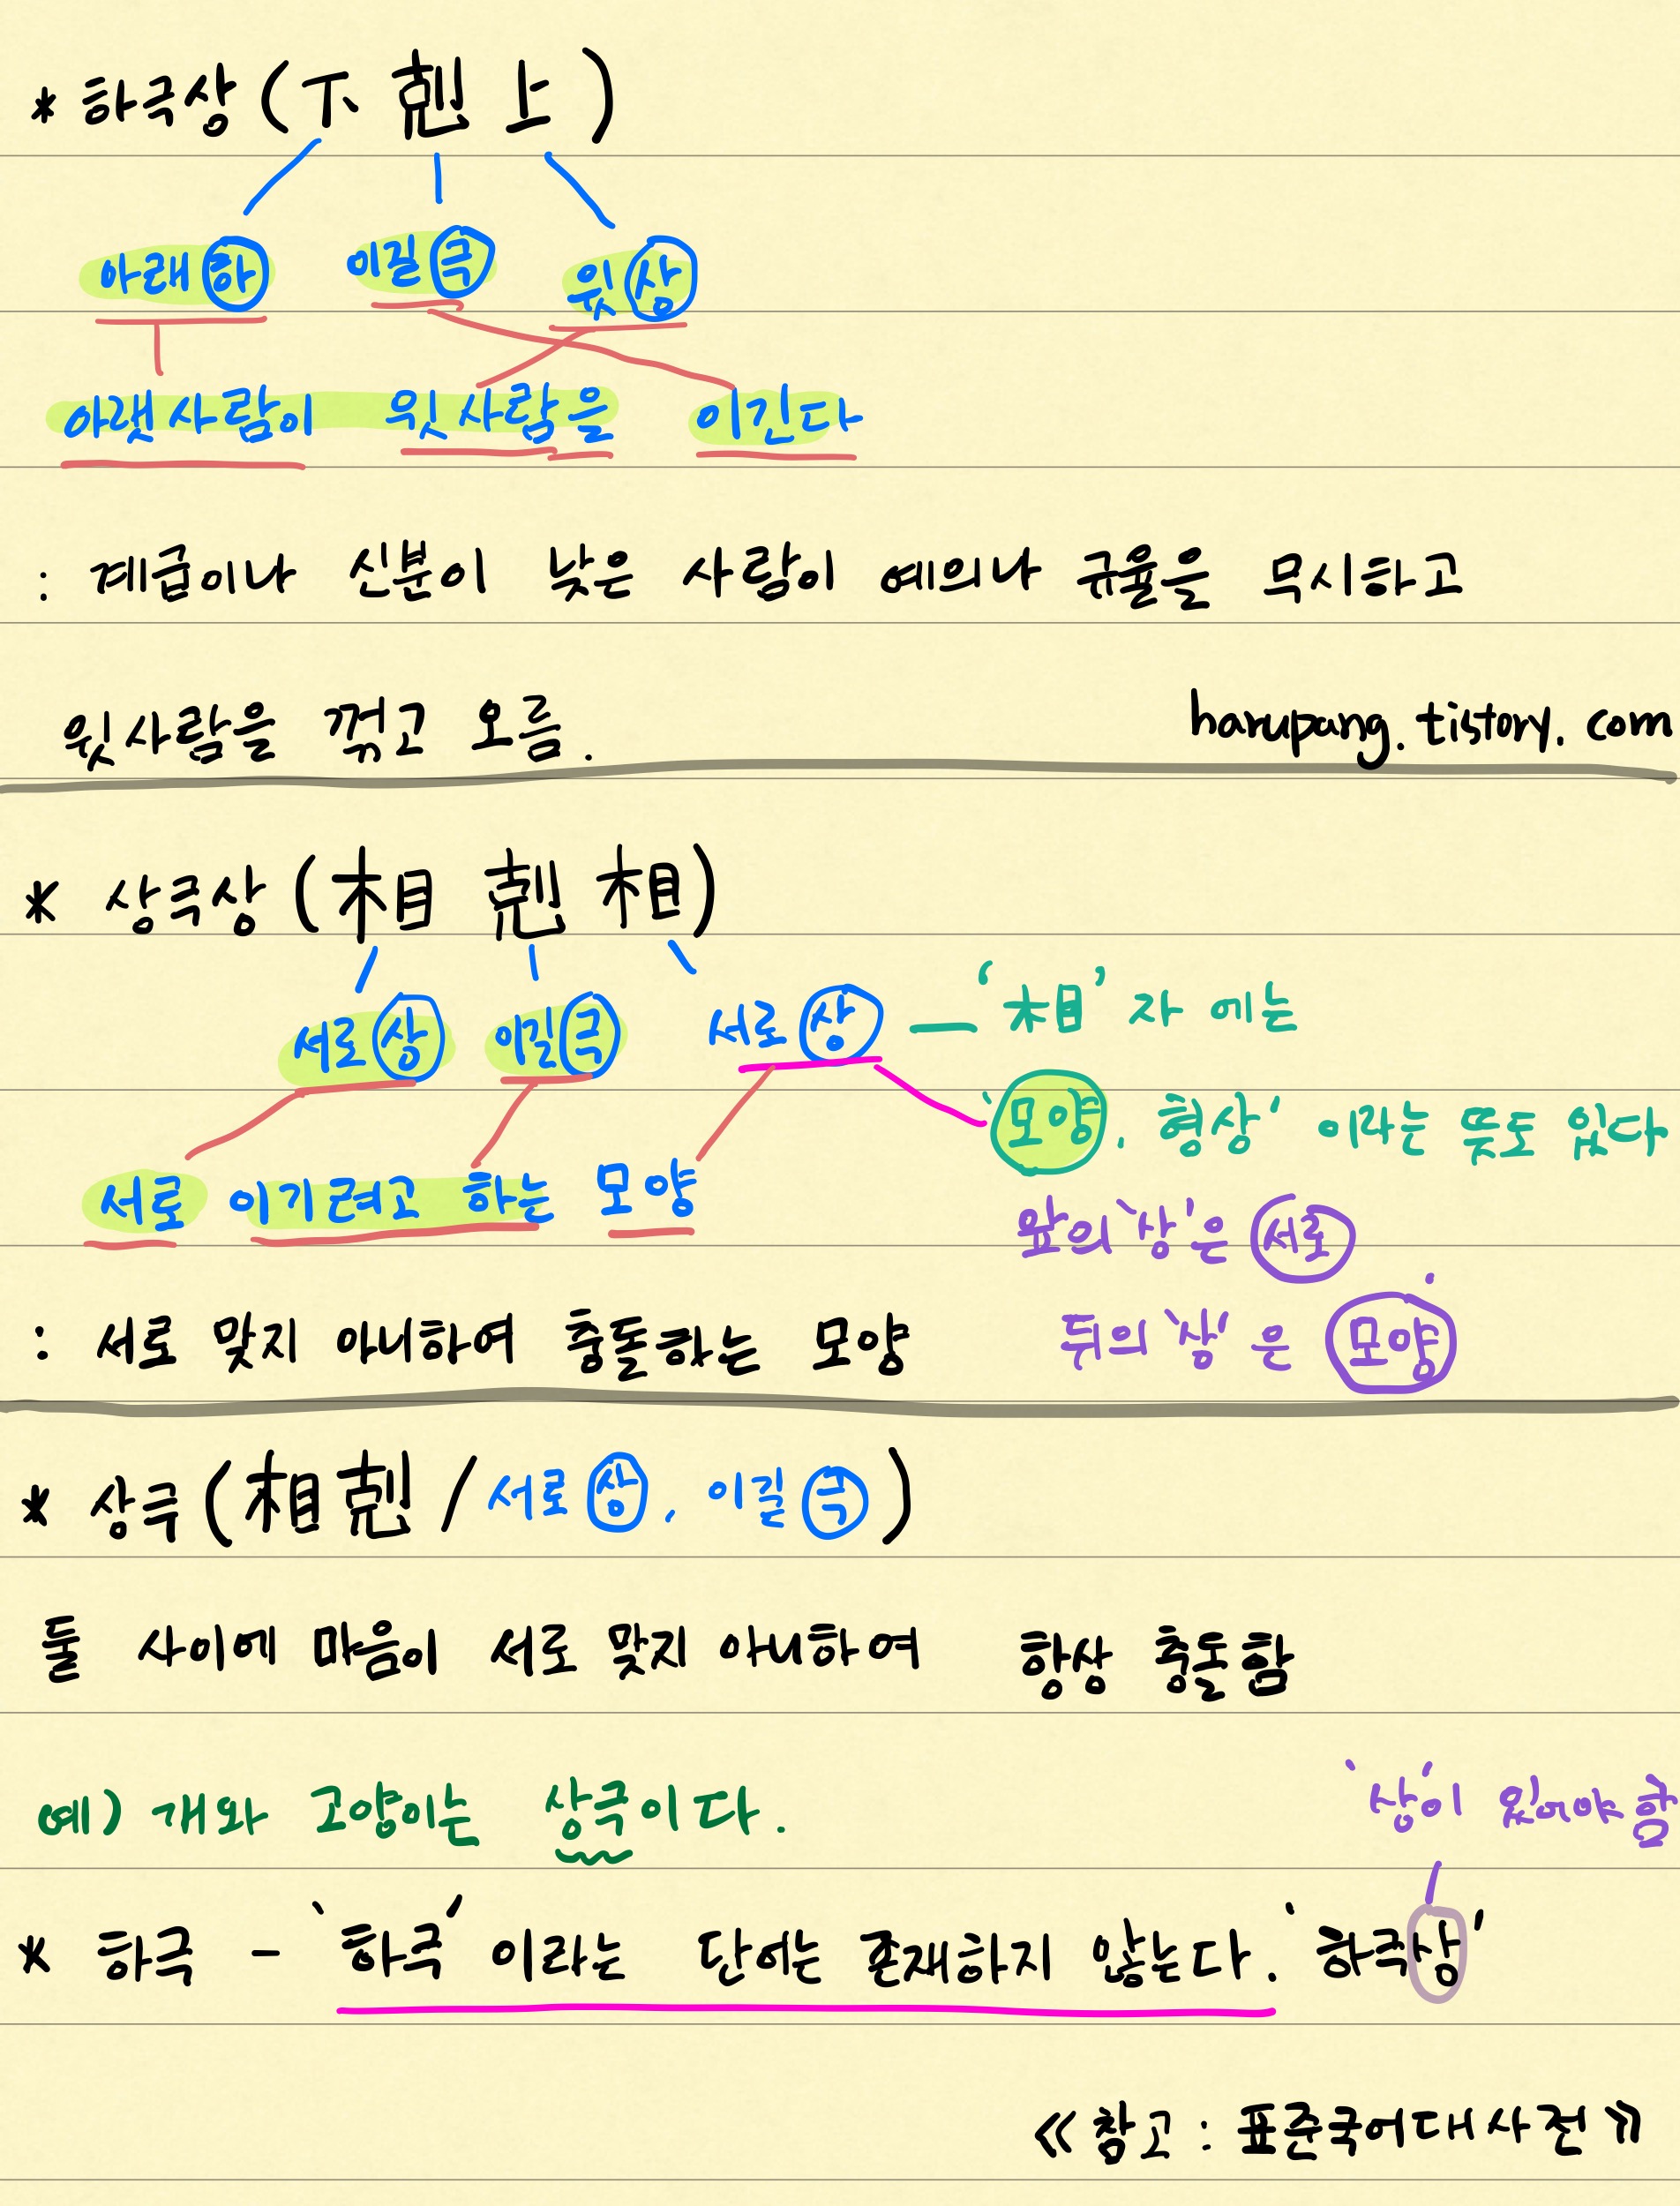 * 하극상 (下 剋 上)
아래 하 이길 극 윗 상
아랫사람이 윗사람을 이긴다
: 계급이나 신분이 낮은 사람이 예의나 규율을 무시하고
윗사람을 꺾고 오름.
harupang.tistory.com
* 상극상 (相 剋 相)
서로 상 이길 극 서로 상 — '相' 자 에는
'모양, 형상' 이라는 뜻도 있다
서로 이기려고 하는 모양
앞의 '상'은 서로
뒤의 '상'은 모양
: 서로 맞지 아니하여 충돌하는 모양
* 상극 (相剋 / 서로 상, 이길 극)
둘 사이에 마음이 서로 맞지 아니하여 항상 충돌함
예) 개와 고양이는 상극이다.
'상'이 있어야 함
* 하극 - '하극' 이라는 단어는 존재하지 않는다. '하극상'
《참고 : 표준국어대사전》